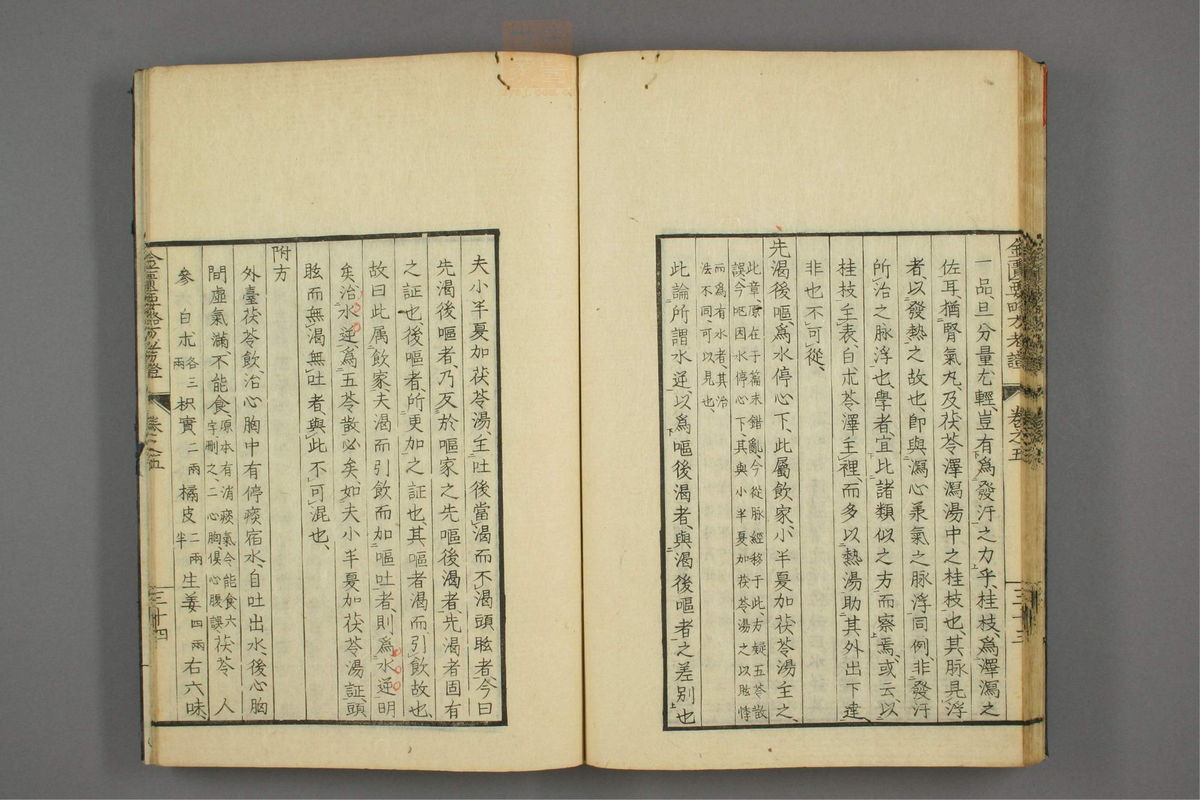 金匱要略方析證 卷之五 三十三
一品、且分量尤輕、豈有爲發汗之力乎、桂枝、爲澤瀉之
佐耳、猶腎氣丸、及茯苓澤瀉湯中之桂枝也、其脉見浮
者、以發熱之故也、卽與瀉心承氣之脉浮同例、非發汗
所治之脉浮也、學者宜比諸類似之方而察焉、或云、以
桂枝主表、白朮苓澤主裡、而多以熱湯助其外出下達、
非也、不可從、
先渴後嘔、爲水停心下、此屬飲家、小半夏加茯苓湯主之、
此章、原在于篇末錯亂、今從脉經移于此、方疑五苓散
誤、今嘔因水停心下、其與小半夏加茯苓湯之以眩悸
而爲有水者、其治
法不同、可以見也、
此論所謂水逆、以爲嘔後渴者、與渴後嘔者之差別也
夫小半夏加茯苓湯、主吐後當渴而不渴頭眩者、今曰
先渴後嘔者、乃反於嘔家之先嘔後渴者、先渴者固有
之証也、後嘔者、所更加之証也、其嘔者渴而引飲故也、
故曰此属飲家、夫渴而引飲而加嘔吐者、則爲水逆明
矣、治水逆、爲五苓散必矣、如夫小半夏加茯苓湯証、頭
眩而無渴、無吐者、與此不可混也、
附方
外臺茯苓飲、治心胸中有停痰宿水、自吐出水、後心胸
間虛氣滿、不能食、原本有消痰氣令能食六
字、刪之、二心胸俱心腹誤、茯苓 人
參 白朮各三兩 枳實二兩 橘皮二兩半 生姜四兩 右六味、
卷之五 三十四